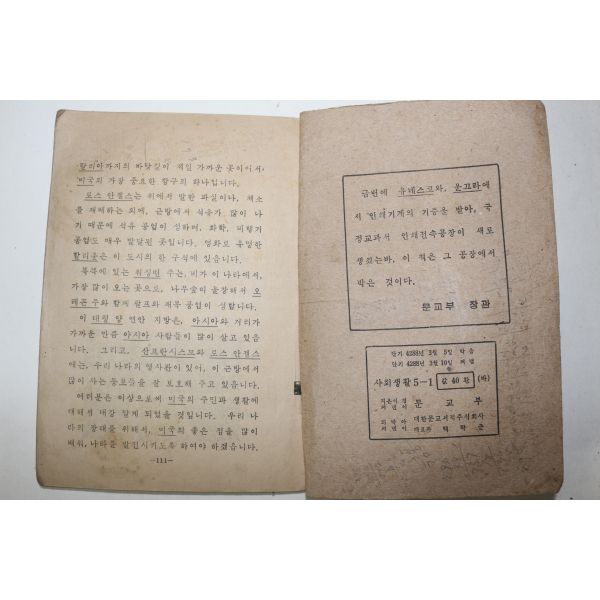 랄리아까지의 바닷길이 제일 가까운 곳이어서,
미국의 가장 중요한 항구의 하나입니다.
로스 안젤스는 위에서 말한 과실이나, 채소
를 재배하는 외에, 근방에서 석유가 많이 나
기 때문에 석유 공업이 성하며, 화학, 비행기
공업도 매우 발달된 곳입니다. 영화로 유명한
할리웃은 이 도시의 한 구석에 있습니다.
북쪽에 있는 워싱턴 주는, 비가 이 나라에서,
가장 많이 오는 곳으로, 나무숲이 울창해서 오
레곤 주와 함께 펄프와 재목 공업이 성합니다.
이 태평 양 연안 지방은, 아시아와 거리가
가까운 만큼 아시아 사람들이 많이 살고 있습니
다. 그리고, 산프란시스코와 로스 안젤스
에는, 우리 나라의 영사관이 있어, 이 근방에서
많이 사는 동포들을 잘 보호해 주고 있습니다.
여러분은 이상으로써 미국의 주민과 생활에
대해서 대강 알게 되었을 것입니다. 우리 나
라의 장래를 위해서, 미국의 좋은 점을 많이
배워, 나라를 발전시키도록 하여야 하겠습니다.
—111—
금번에 유네스코와, 운끄라에
서 인쇄기계의 기증을 받아, 국
정교과서 인쇄전속공장이 새로
생겼는바, 이 책은 그 공장에서
박은 것이다.
문교부 장관
단기 4288년 3월 5일 박음
단기 4288년 3월 10일 펴냄
사회생활 5-1 값 40환 (바)
지은이겸 펴낸이 문 교 부
박아 펴낸이 대한문교서적주식회사
대표자